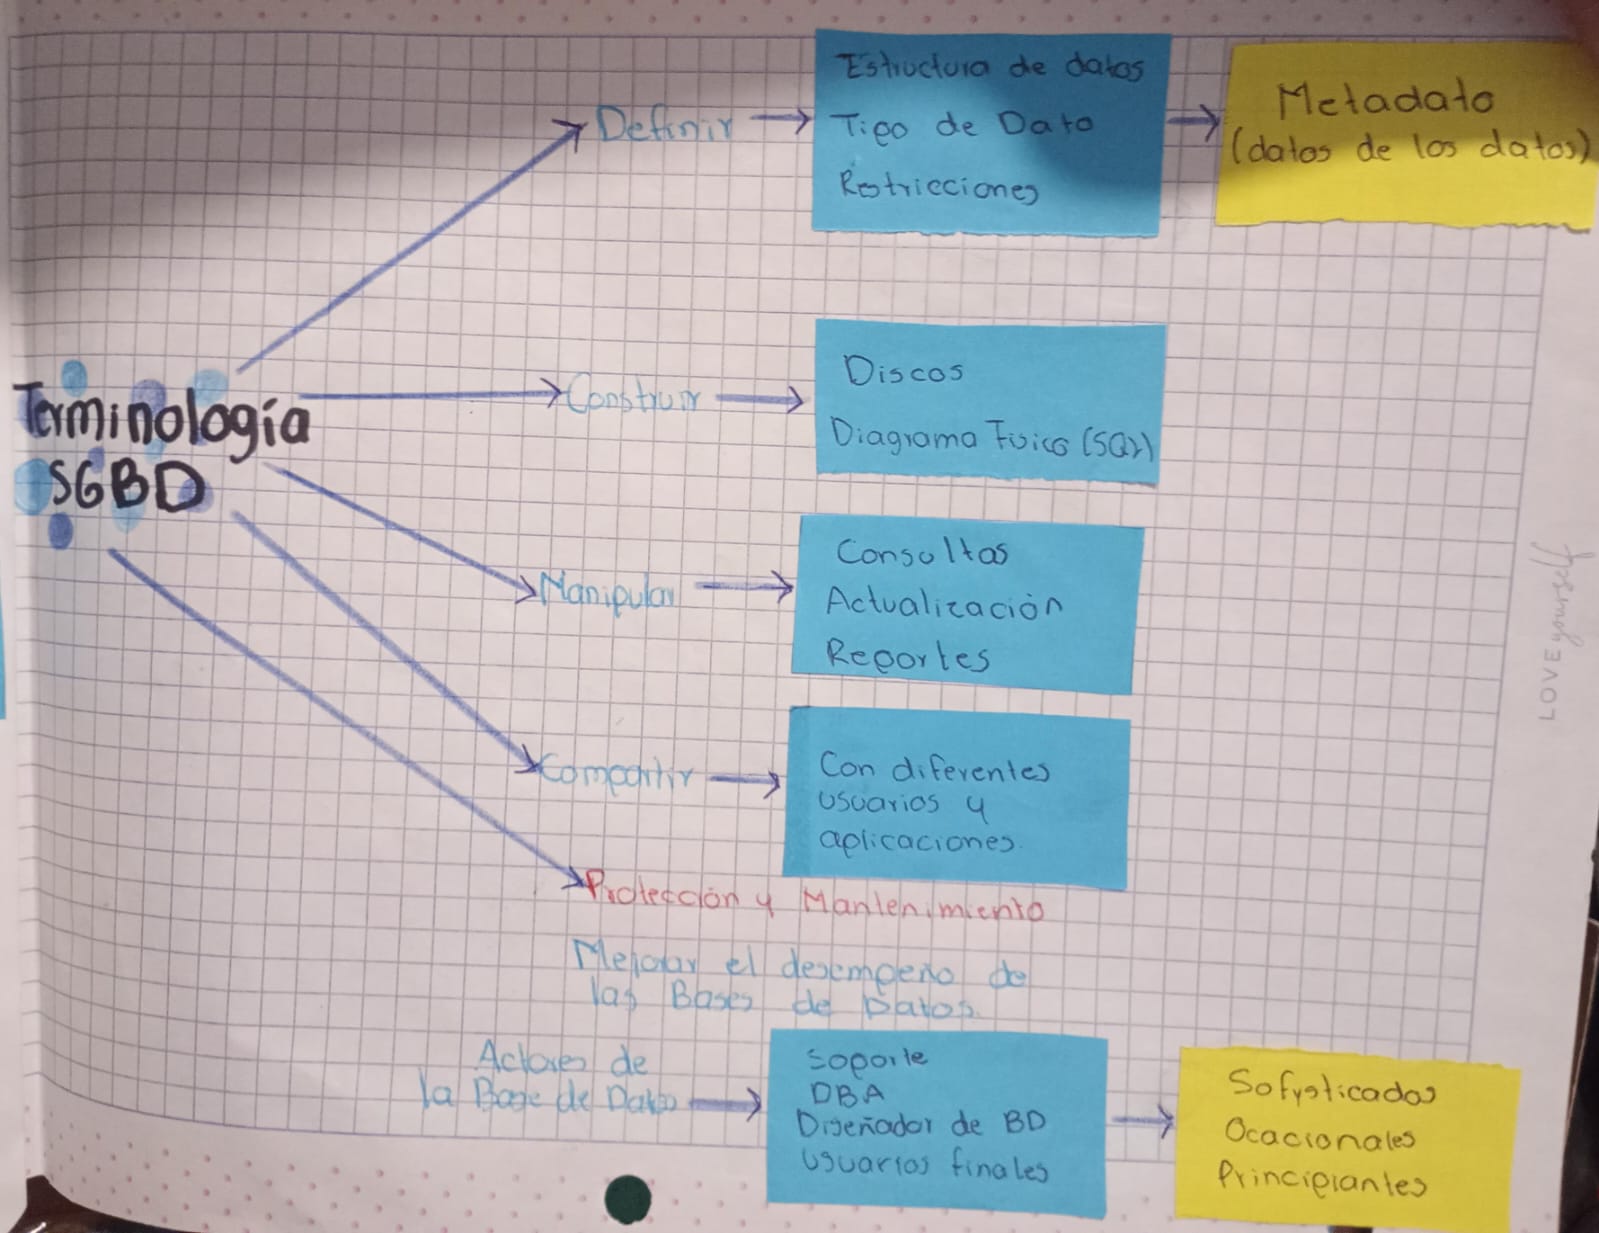 Definir
Estructura de datos
Tipo de Dato
Restricciones
Metadato
(datos de los datos)
Terminología
SGBD
Construir
Discos
Diagrama Fisico (SQL)
Manipular
Consultas
Actualización
Reportes
Compartir
Con diferentes
usuarios y
aplicaciones.
Protección y Mantenimiento
Mejorar el desempeño de
las Bases de Datos.
Actores de
la Base de Datos
Soporte
DBA
Diseñador de BD
Usuarios finales
Sofysticados
Ocacionales
Principiantes
LOVE yourself